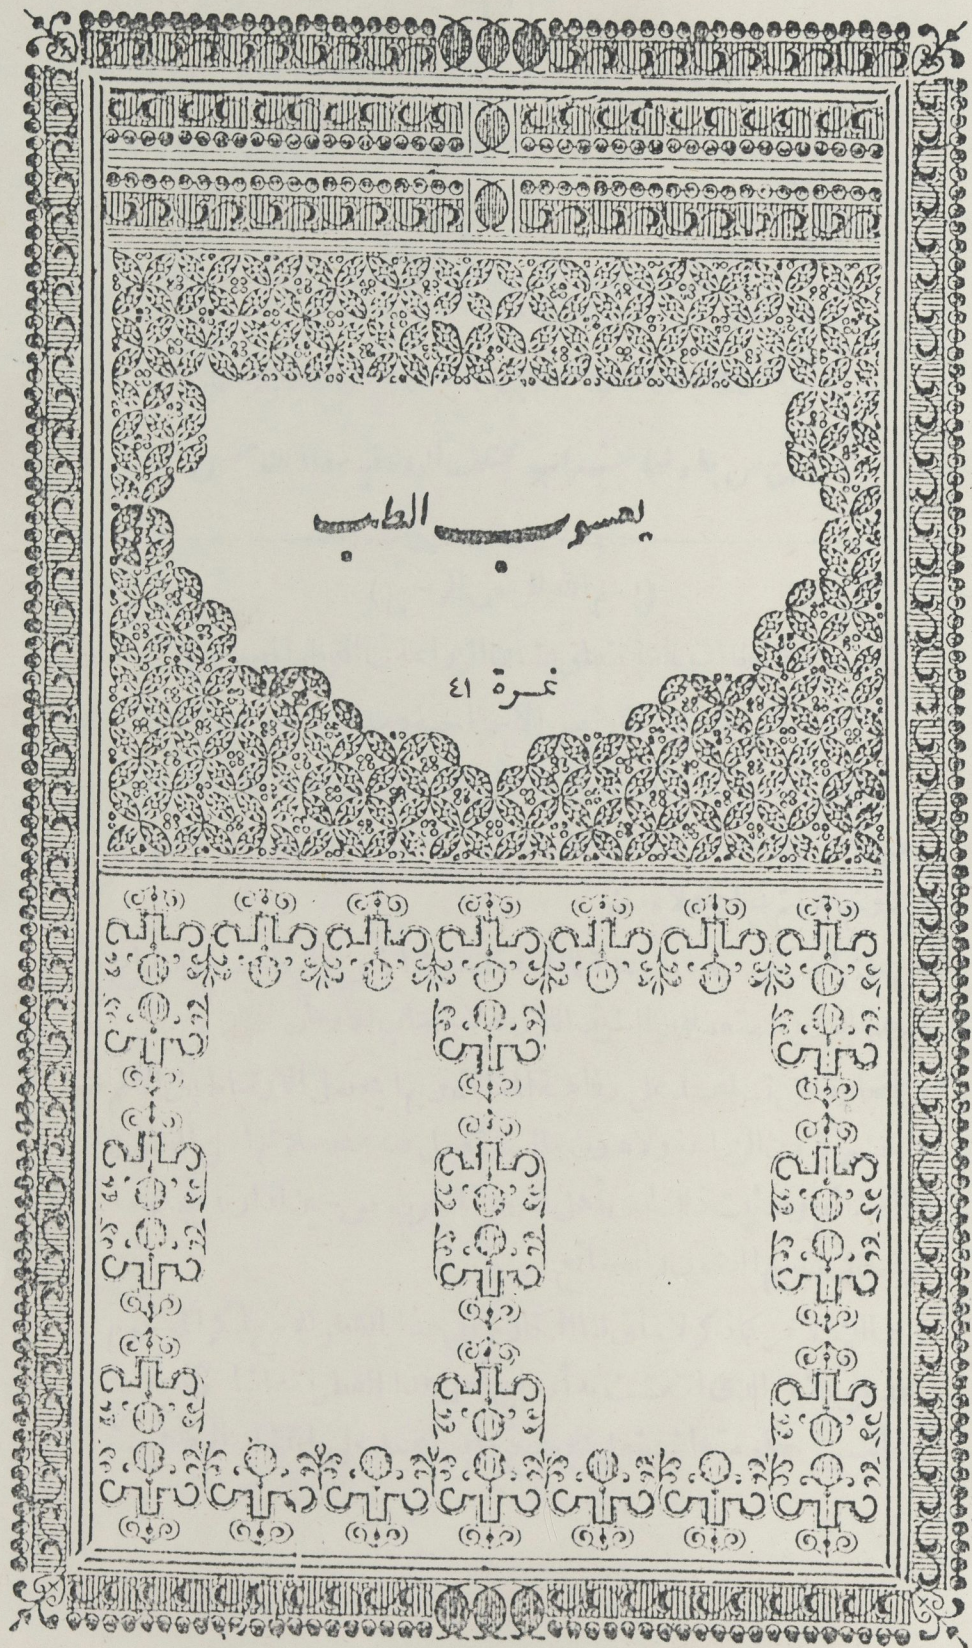 يعسوب الطب
نمرة ٤١